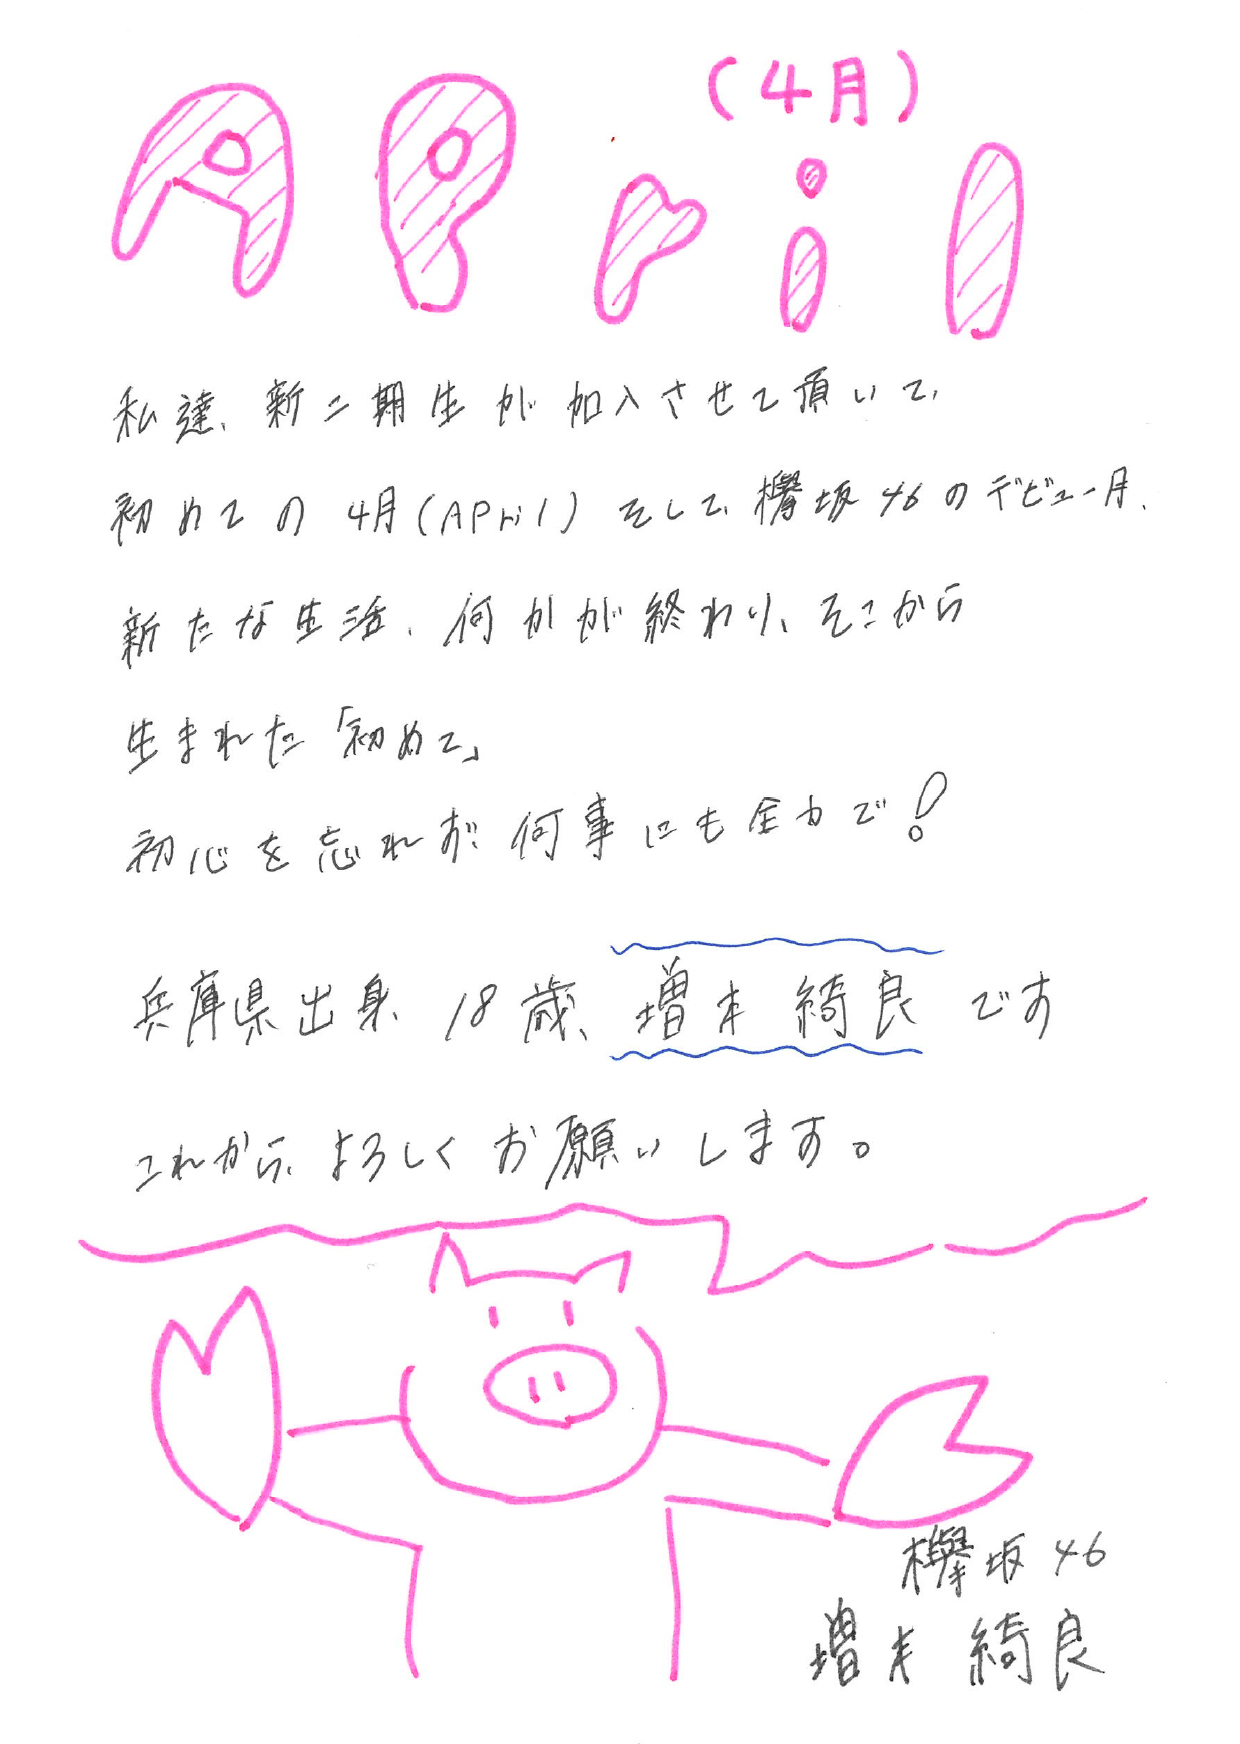 (4月)
APril
私達、新二期生が加入させて頂いて、
初めての4月(APril)そして、欅坂46のデビュー月、
新たな生活、何かが終わり、そこから
生まれた「初めて」
初心を忘れず、何事にも全力で!
兵庫県出身、18歳、増本綺良です
これから、よろしくお願いします。
欅坂46
増本綺良